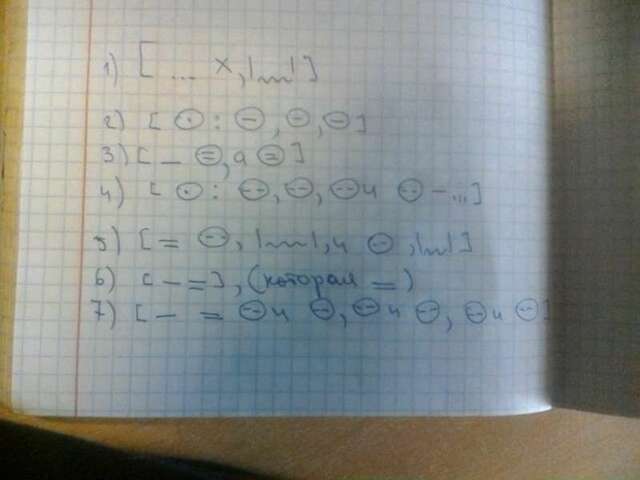 1) [ ... х, |﹏| ]
2) [ ⊙ : ⊖, ⊖, ⊖ ]
3) [ – ⊜, а ⊜ ]
4) [ ⊙ : (--), (--), (--) и (--) – ... ]
5) [ = (--), |﹏|, и (-), |﹏| ]
6) [ – = ], (которая = )
7) [ – = (--) и (--), (--) и (--), (--) и (--) ]